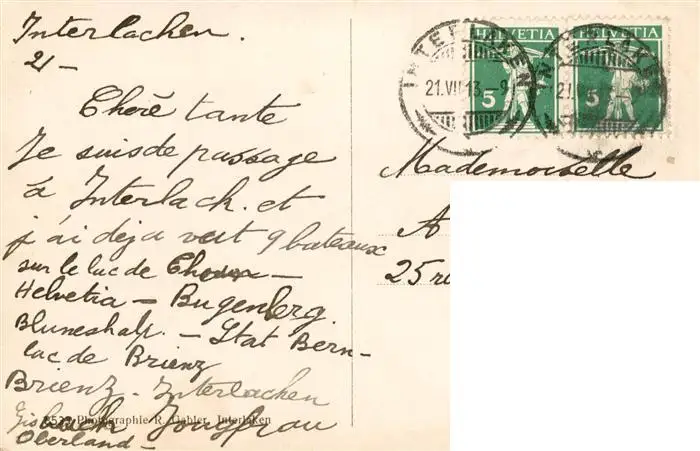 Interlachen.
21-
Cherè tante
Je suis de passage
à Interlach. et
j'ai deja veut 9 bateaux
sur le lac de
Helvetia - Bugenberg.
Blumeshalp. - Stat Bern-
lac de Brienz
Brienz - Interlachen
Jongfrau
Oberland -
Photographie R. Gabler, Interlaken
HELVETIA HELVETIA
5 5
INTERLAKEN
21.VII.13.-9
Mademoiselle
A
25 ru